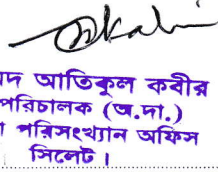 আতিকুল কবীর
পরিচালক (অ.দা.)
পরিসংখ্যান অফিস
সিলেট।